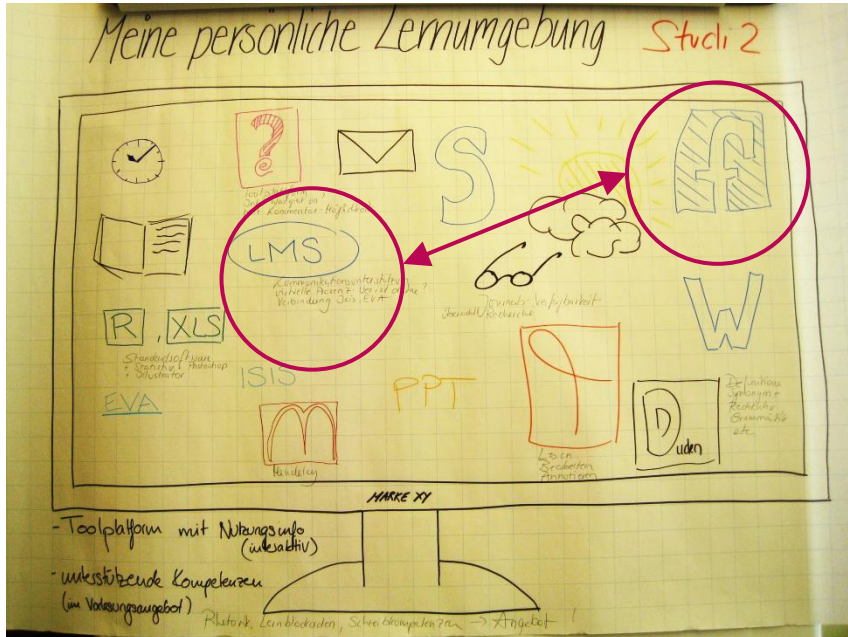 Meine persönliche Lernumgebung Studi 2
?
S
f
Toolplattform
LMS
Kommunikationsunterstützung
virtuelle Präsenz
Verbindung Isis, EVA
Journals-Verfügbarkeit
W
R , XLS
Standardsoftware
+ Statistik + Photoshop
+ Illustrator
ISIS
EVA
PPT
Mendeley
Lesen
Bearbeiten
Annotieren
Duden
Definitions
Synonyme
Rechtschr.
Grammatik
etc.
MARKE XY
- Toolplatform mit Nutzungsinfo
(interaktiv)
- unterstützende Kompetenzen
(im Vorlesungsangebot)
Rhetorik, Lernblockaden, Schreibkompetenzen → Angebot !